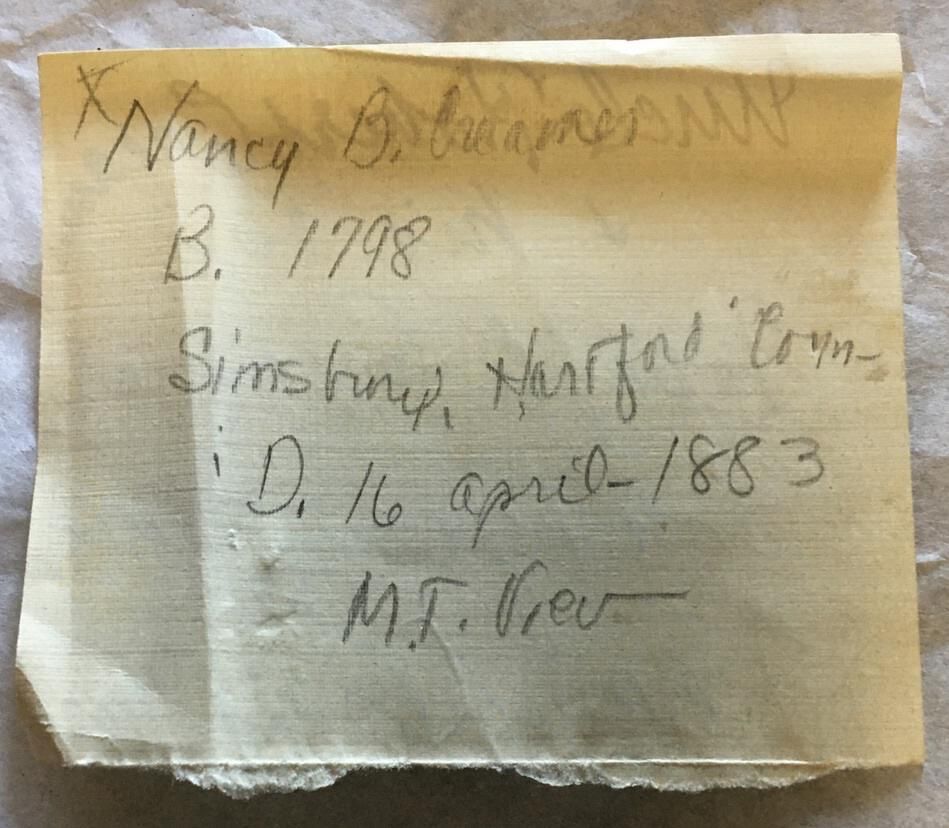 X Nancy B. Craamer
B. 1798
Simsbury, Hartford Conn-
D. 16 april-1883
M.T. View